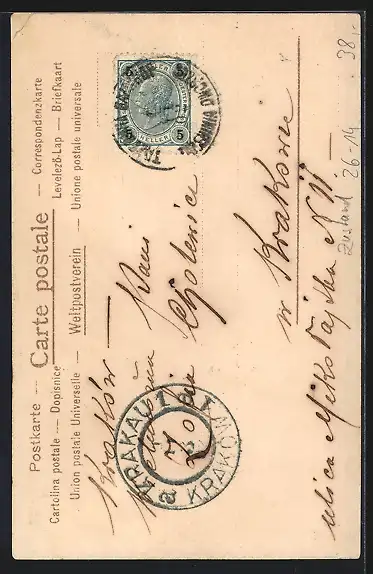 Postkarte — Carte postale — Correspondenzkarte
Cartolina postale — Dopisnice Levelező-Lap — Briefkaart
Union postale Universelle — Weltpostverein — Unione postale universale
5 5
5 5
Kraków —
Pani
Zofia
w Krakowie
ulica Mikołajska N 11
KRAKAU 1
KRAKÓW
a
38,-
Zustand 26-14